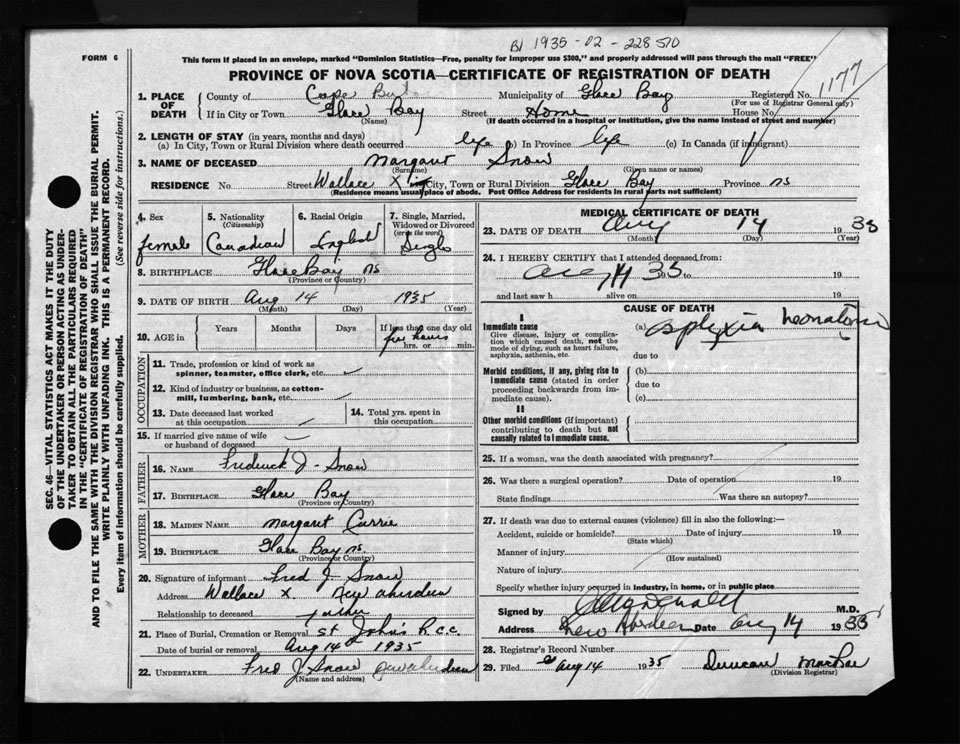 B1 1935-02-228510
FORM 6
This form if placed in an envelope, marked "Dominion Statistics—Free, penalty for improper use $300," and properly addressed will pass through the mail "FREE"
PROVINCE OF NOVA SCOTIA—CERTIFICATE OF REGISTRATION OF DEATH
1177
1. PLACE OF DEATH
County of Cape Municipality of Glace Bay Registered No.
(For use of Registrar General only)
If in City or Town Glace Bay Street Home House No.
(Name) (If death occurred in a hospital or institution, give the name instead of street and number)
2. LENGTH OF STAY (in years, months and days)
(a) In City, Town or Rural Division where death occurred life (b) In Province life (c) In Canada (if immigrant)
3. NAME OF DECEASED Margaret Snow
(Surname) (Given name or names)
RESIDENCE No Street Wallace X City, Town or Rural Division Glace Bay Province NS
(Residence means usual place of abode. Post Office Address for residents in rural parts not sufficient)
4. Sex
female
5. Nationality
(Citizenship)
Canadian
6. Racial Origin
English
7. Single, Married, Widowed or Divorced
(write the word)
Single
8. BIRTHPLACE Glace Bay NS
(Province or Country)
9. DATE OF BIRTH Aug 14 1935
(Month) (Day) (Year)
10. AGE in
Years Months Days If less than one day old
few hours
hrs. or min.
OCCUPATION
11. Trade, profession or kind of work as
spinner, teamster, office clerk, etc.
12. Kind of industry or business, as cotton-
mill, lumbering, bank, etc.
13. Date deceased last worked
at this occupation
14. Total yrs. spent in
this occupation
15. If married give name of wife
or husband of deceased
FATHER
16. NAME Frederick J - Snow
17. BIRTHPLACE Glace Bay
(Province or Country)
MOTHER
18. MAIDEN NAME Margaret Currie
19. BIRTHPLACE Glace Bay NS.
(Province or Country)
20. Signature of informant Fred J. Snow
Address Wallace X. New Aberdeen
Relationship to deceased father
21. Place of Burial, Cremation or Removal St John's R.C.C.
Date of burial or removal Aug 14 1935
22. UNDERTAKER Fred J. Snow New Aberdeen
(Name and address)
MEDICAL CERTIFICATE OF DEATH
23. DATE OF DEATH Aug 14 1935
(Month) (Day) (Year)
24. I HEREBY CERTIFY that I attended deceased from:
Aug 14 35 to 19
and last saw h alive on 19
CAUSE OF DEATH
I
Immediate cause
Give disease, injury or complica-
tion which caused death, not the
mode of dying, such as heart failure,
asphyxia, asthenia, etc.
(a) Asphyxia Neonatorum
due to
Morbid conditions, if any, giving rise to
immediate cause (stated in order
proceeding backwards from im-
mediate cause).
(b)
due to
(c)
II
Other morbid conditions (if important)
contributing to death but not
causally related to immediate cause.
25. If a woman, was the death associated with pregnancy?
26. Was there a surgical operation? Date of operation 19
State findings Was there an autopsy?
27. If death was due to external causes (violence) fill in also the following:—
Accident, suicide or homicide? Date of injury 19
(State which)
Manner of injury
(How sustained)
Nature of injury
Specify whether injury occurred in industry, in home, or in public place
Signed by M.D.
Address New Aberdeen Date Aug 14 1935
28. Registrar's Record Number
29. Filed Aug 14 1935 Duncan MacRae
(Division Registrar)
SEC. 46—VITAL STATISTICS ACT MAKES IT THE DUTY
OF THE UNDERTAKER OR PERSON ACTING AS UNDER-
TAKER TO OBTAIN ALL THE PARTICULARS REQUIRED
IN THE "CERTIFICATE OF REGISTRATION OF DEATH"
AND TO FILE THE SAME WITH THE DIVISION REGISTRAR WHO SHALL ISSUE THE BURIAL PERMIT.
WRITE PLAINLY WITH UNFADING INK. THIS IS A PERMANENT RECORD.
Every item of information should be carefully supplied. (See reverse side for instructions.)